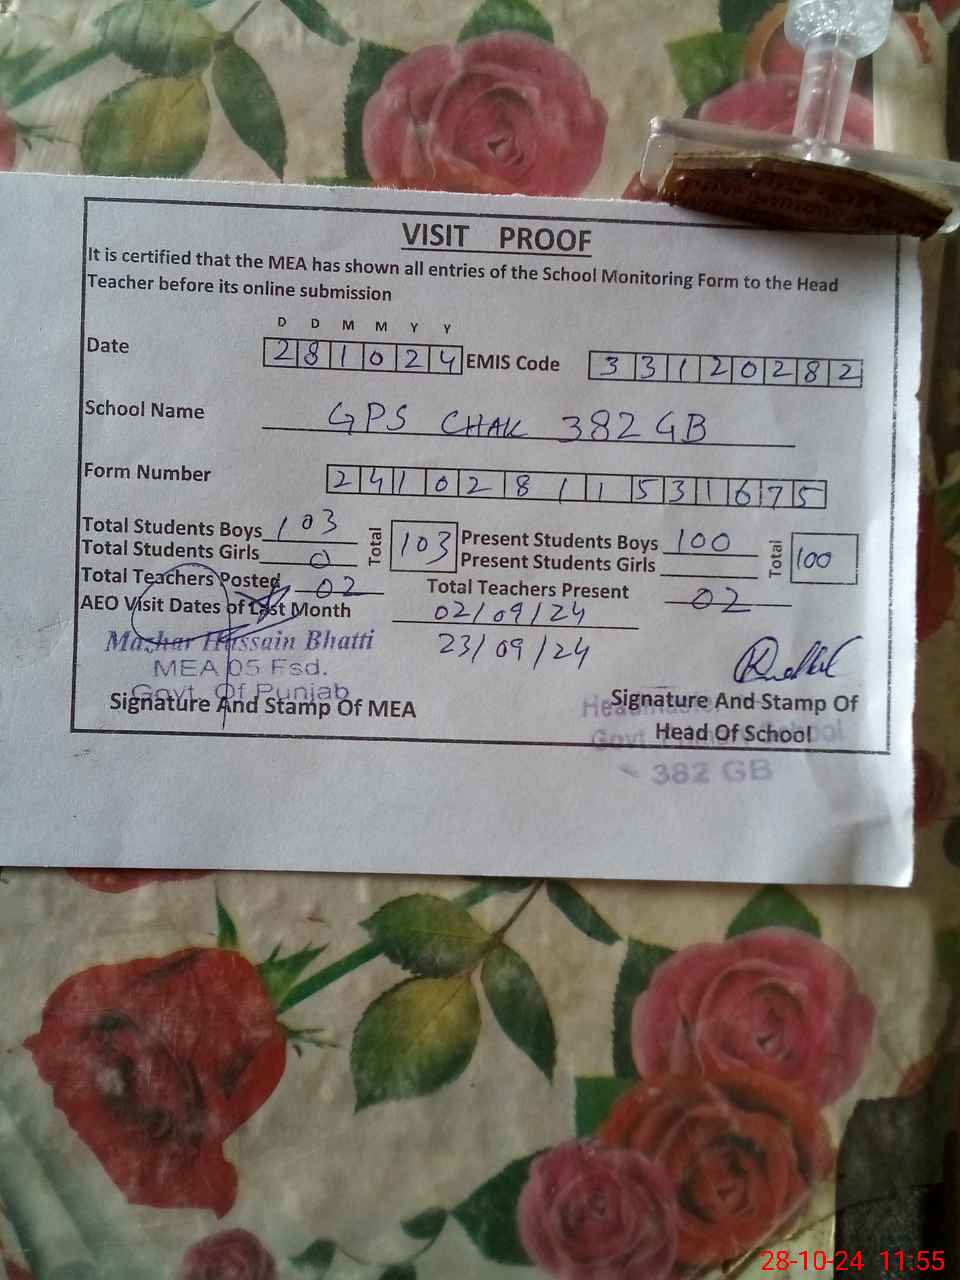 VISIT PROOF
It is certified that the MEA has shown all entries of the School Monitoring Form to the Head
Teacher before its online submission
D D M M Y Y
Date 281024 EMIS Code 33120282
School Name GPS CHAK 382 GB
Form Number 24102811531675
Total Students Boys 103 Total 103 Present Students Boys 100 Total 100
Total Students Girls 0 Present Students Girls
Total Teachers Posted 02 Total Teachers Present 02
AEO Visit Dates of Last Month 02/09/24
23/09/24
Mazhar Hussain Bhatti
MEA 05 Fsd.
Govt. Of Punjab
Signature And Stamp Of MEA
Signature And Stamp Of
Head Of School
Headmaster
Govt. Primary School
382 GB
28-10-24 11:55